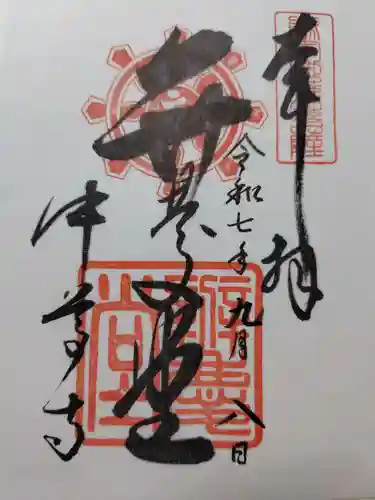 奉拝
令和七年九月八日
弁慶堂
中尊寺